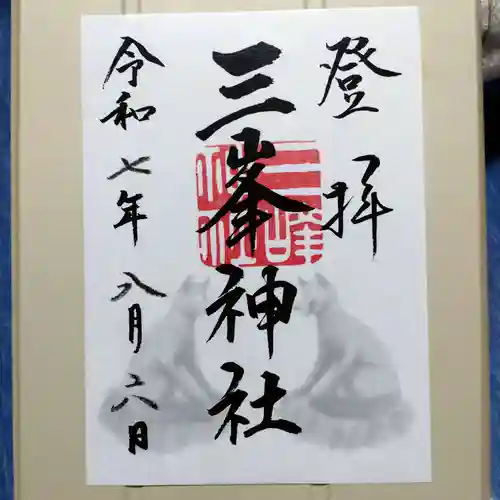 登拝
三峯神社
令和七年八月六日